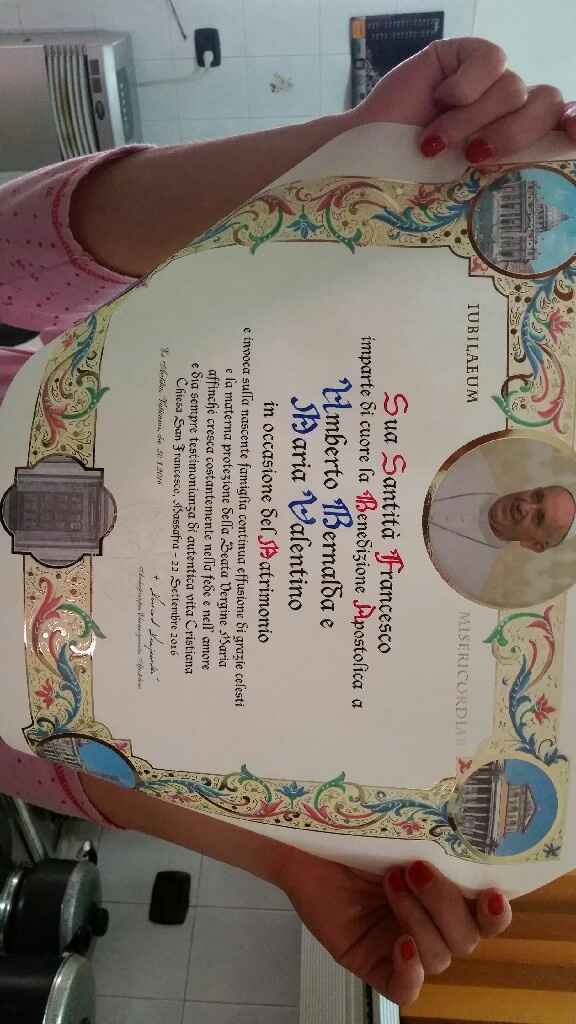 IUBILAEUM
MISERICORDIAE
Sua Santità Francesco
imparte di cuore la Benedizione Apostolica a
Umberto Bernalda e
Maria Valentino
in occasione del Matrimonio
e invoca sulla nascente famiglia continua effusione di grazie celesti
e la materna protezione della Beata Vergine Maria
affinchè cresca costantemente nella fede e nell' amore
e dia sempre testimonianza di autentica vita Cristiana
Chiesa San Francesco, Massafra - 22 Settembre 2016